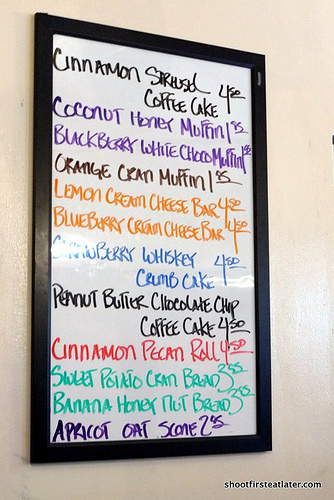 Cinnamon Streusel
Coffee Cake 4.50
Coconut Honey Muffin 1.95
Blackberry White Choco Muffin 1.95
Orange Cran Muffin 1.95
Lemon Cream Cheese Bar 4.50
Blueberry Cream Cheese Bar 4.50
Strawberry Whiskey 4.50
Crumb Cake
Peanut Butter Chocolate Chip
Coffee Cake 4.50
Cinnamon Pecan Roll 4.50
Sweet Potato Cran Bread 3.55
Banana Honey Nut Bread 3.55
Apricot Oat Scone 2.95
shootfirsteatlater.com